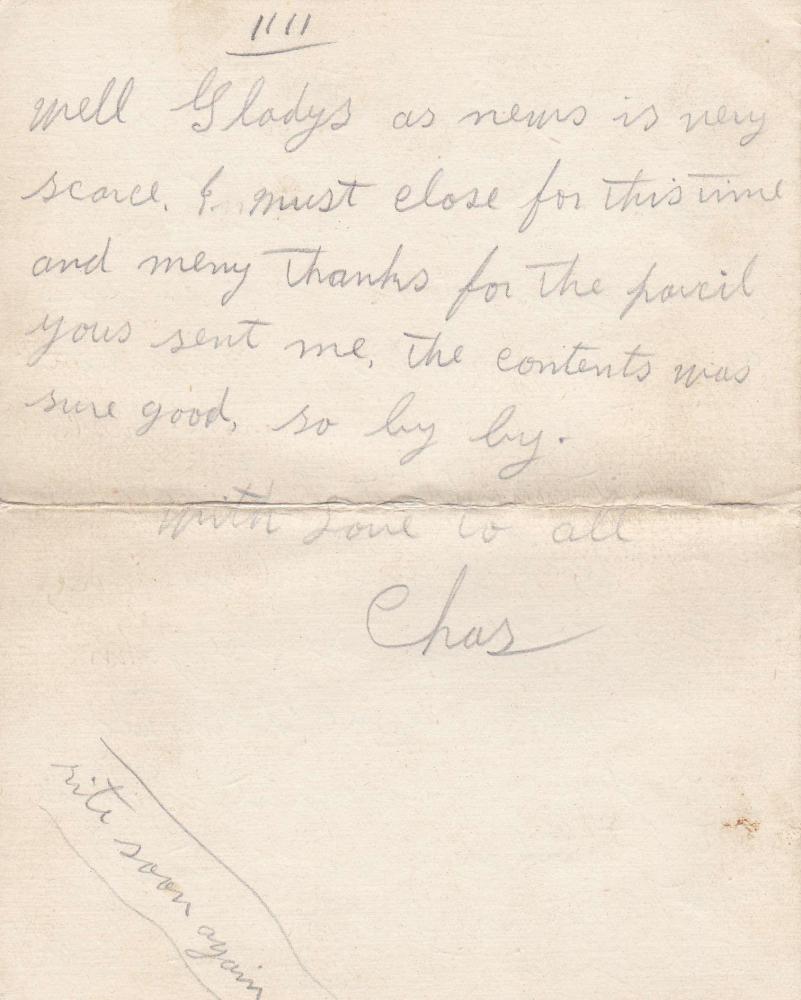 1111
well Gladys as news is very
scarce. I must close for this time
and meny thanks for the parcil
yous sent me, the contents was
sure good, so by by.
with Love to all
Chas
rite soon again